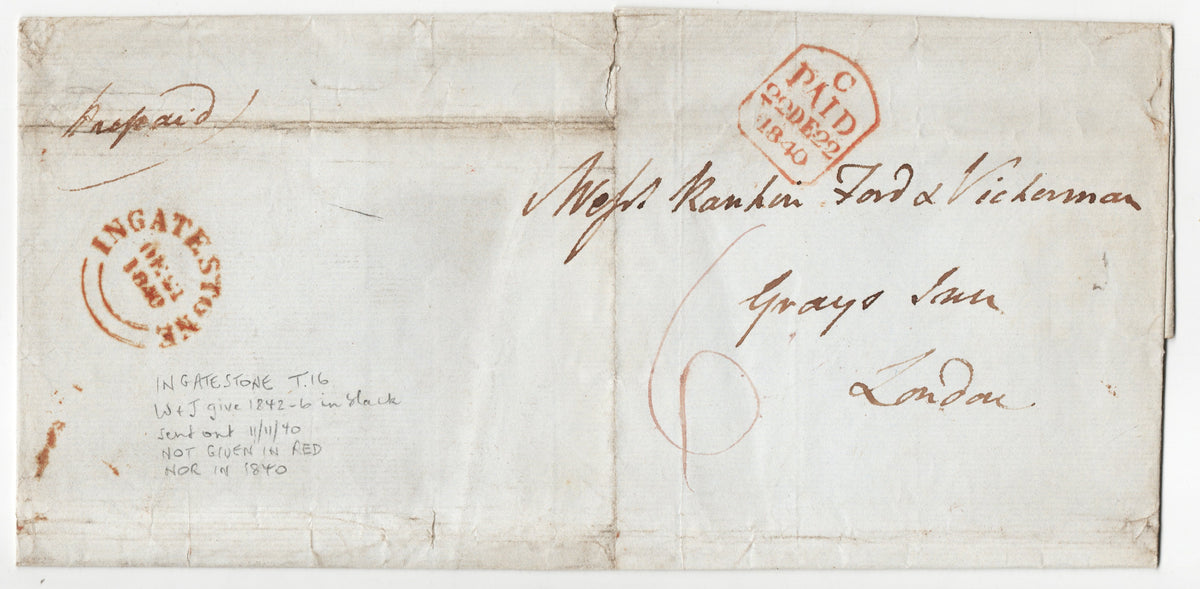 Prepaid
C
PAID
22DE22
1840
Messrs Rankin Ford & Vickerman
Grays Inn
London
6
INGATESTONE
DE 21
1840
INGATESTONE T.16
W+J give 1842-6 in black
sent out 11/11/40
NOT GIVEN IN RED
NOR IN 1840